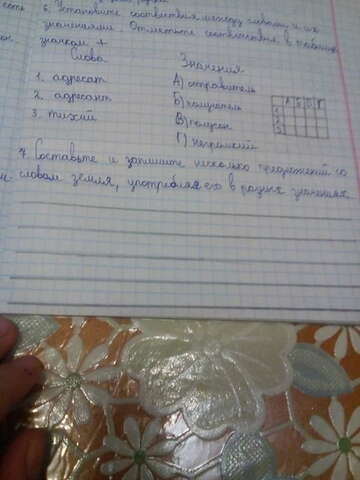 6. Установите соответствия между словами и их
значениями. Отметьте соответствия в таблице
значком +
Слова Значения
1. адресат А) отправитель
2. адресант Б) получатель
3. тихий В)
Г) негромкий
А Б В Г
1
2
3
7. Составьте и запишите несколько предложений со
словом земля, употребляя его в разных значениях